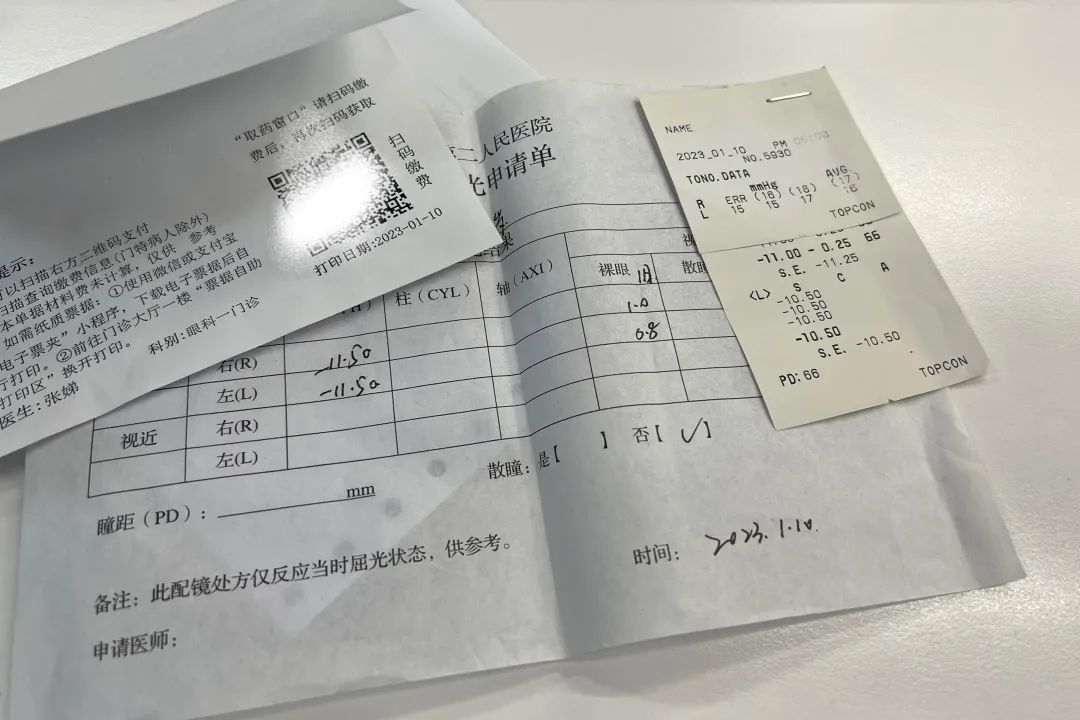 "取药窗口"请扫码缴
费后，再次扫码获取
扫码缴费
打印日期:2023-01-10
提示:
可以扫描右方二维码支付
扫描查询缴费信息(门特病人除外)
本单据材料费未计算，仅供 参考
如需纸质票据：①使用微信或支付宝
电子票夹"小程序，下载电子票据后自
行打印。②前往门诊大厅一楼"票据自助
打印区"换开打印。
科别:眼科一门诊
医生:张娣
二人民医院
光申请单
柱(CYL)
轴(AXI)
裸眼 旧
散瞳
1.0
0.8
右(R) -11.50
左(L) -11.50
视近
右(R)
左(L)
瞳距(PD): mm
散瞳: 是【 】 否【 ✓】
备注: 此配镜处方仅反应当时屈光状态，供参考。
时间: 2023.1.10.
申请医师:
NAME
2023_01_10 PM 05:03
NO.5930
TONO.DATA
mmHg AVG
R ERR (16) (16) (17)
L 15 15 17 16
TOPCON
-11.00 - 0.25 66
S.E. -11.25
S C A
<L> -10.50
-10.50
-10.50
-10.50
S.E. -10.50
PD:66
TOPCON